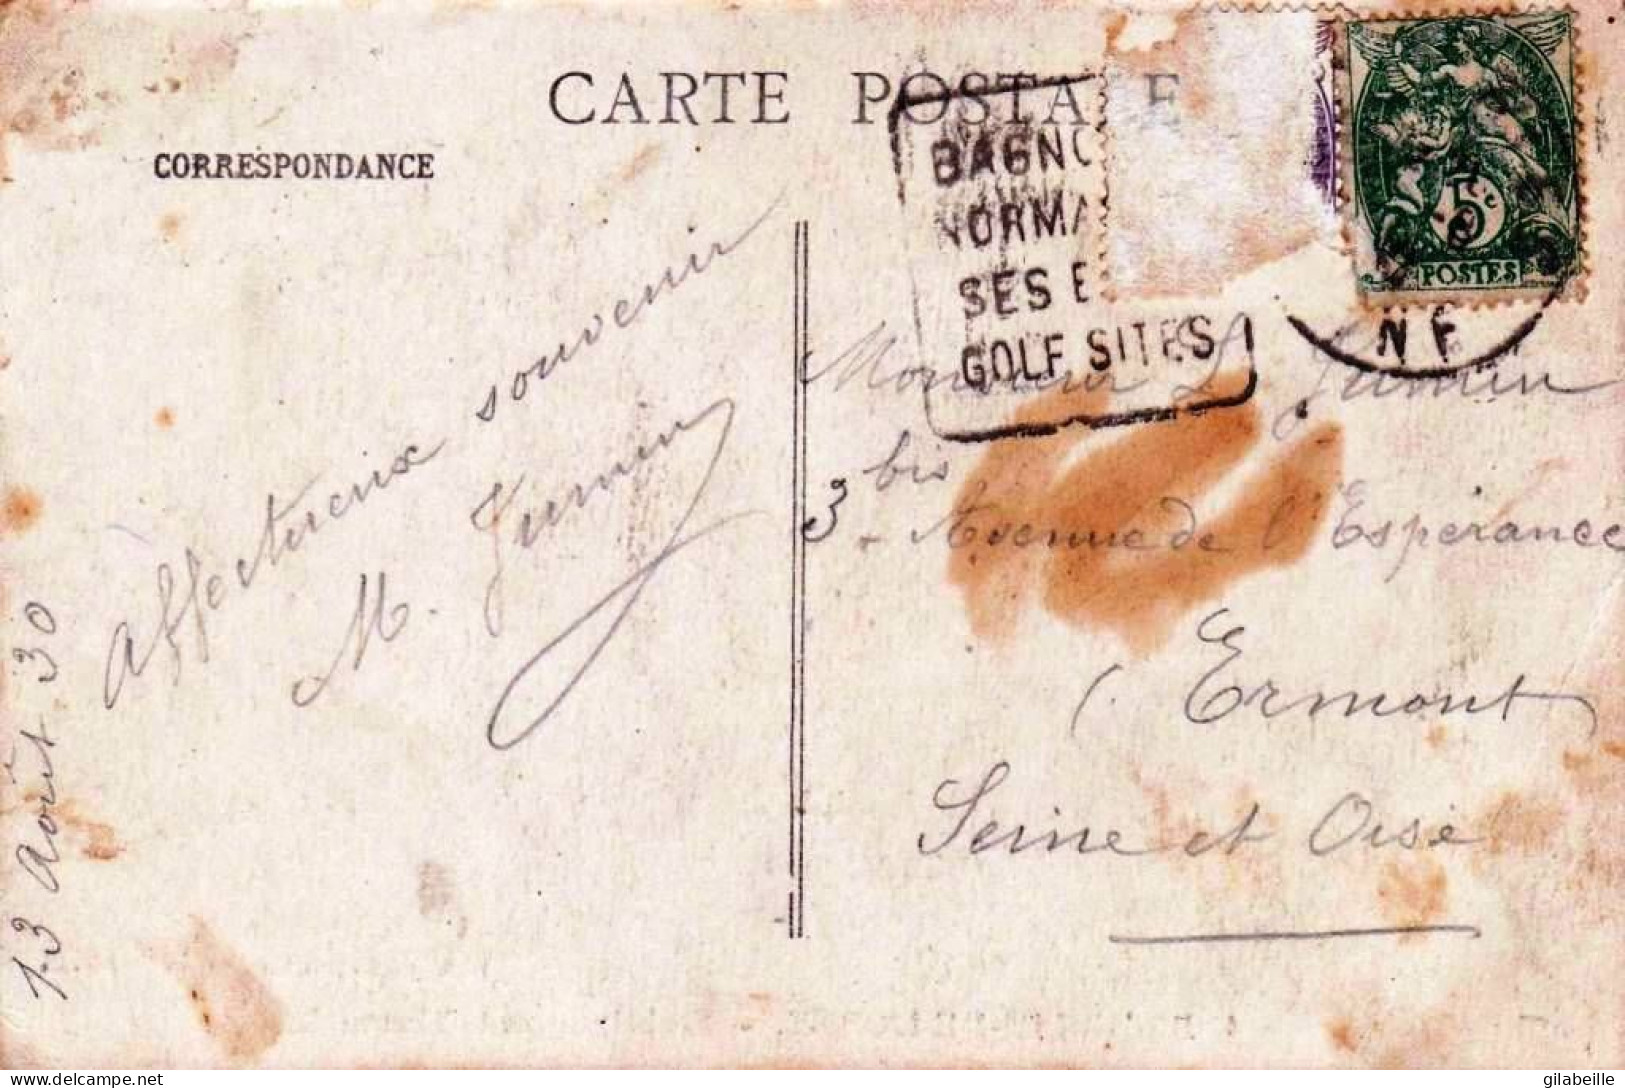 CARTE POSTALE
CORRESPONDANCE
BAGNO
NORMA
SES E
GOLF SITES
5c
POSTES
N F
Affectueux souvenir
M. Jumin
13 Août 30
Monsieur L. Jumin
3 bis - Avenue de l'Espérance
Ermont
Seine et Oise
delcampe.net
gilabeille